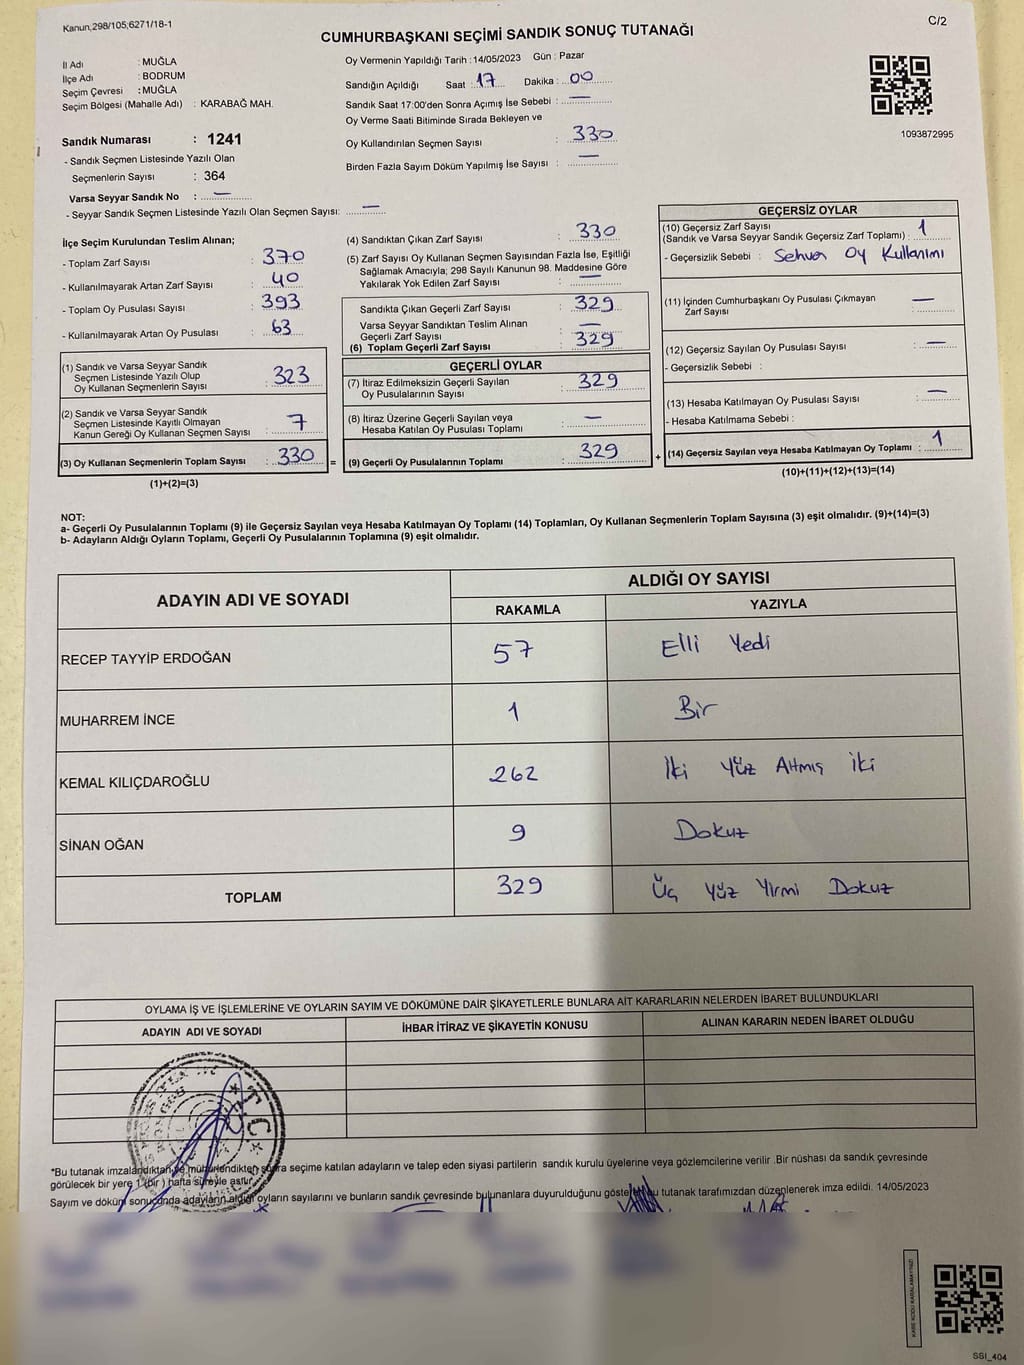 Kanun;298/105,6271/18-1
C/2
CUMHURBAŞKANI SEÇİMİ SANDIK SONUÇ TUTANAĞI
İl Adı : MUĞLA
İlçe Adı : BODRUM
Seçim Çevresi : MUĞLA
Seçim Bölgesi (Mahalle Adı) : KARABAĞ MAH.
Sandık Numarası : 1241
- Sandık Seçmen Listesinde Yazılı Olan
Seçmenlerin Sayısı : 364
Varsa Seyyar Sandık No : —
- Seyyar Sandık Seçmen Listesinde Yazılı Olan Seçmen Sayısı: —
Oy Vermenin Yapıldığı Tarih : 14/05/2023 Gün : Pazar
Sandığın Açıldığı Saat : 17 Dakika : 00
Sandık Saat 17:00'den Sonra Açımış İse Sebebi : —
Oy Verme Saati Bitiminde Sırada Bekleyen ve
Oy Kullandırılan Seçmen Sayısı : 330
Birden Fazla Sayım Döküm Yapılmış İse Sayısı : —
1093872995
İlçe Seçim Kurulundan Teslim Alınan;
- Toplam Zarf Sayısı : 370
- Kullanılmayarak Artan Zarf Sayısı : 40
- Toplam Oy Pusulası Sayısı : 393
- Kullanılmayarak Artan Oy Pusulası : 63
(1) Sandık ve Varsa Seyyar Sandık
Seçmen Listesinde Yazılı Olup
Oy Kullanan Seçmenlerin Sayısı : 323
(2) Sandık ve Varsa Seyyar Sandık
Seçmen Listesinde Kayıtlı Olmayan
Kanun Gereği Oy Kullanan Seçmen Sayısı : 7
(3) Oy Kullanan Seçmenlerin Toplam Sayısı : 330 =
(1)+(2)=(3)
(4) Sandıktan Çıkan Zarf Sayısı : 330
(5) Zarf Sayısı Oy Kullanan Seçmen Sayısından Fazla İse, Eşitliği
Sağlamak Amacıyla; 298 Sayılı Kanunun 98. Maddesine Göre
Yakılarak Yok Edilen Zarf Sayısı : —
Sandıkta Çıkan Geçerli Zarf Sayısı : 329
Varsa Seyyar Sandıktan Teslim Alınan
Geçerli Zarf Sayısı : —
(6) Toplam Geçerli Zarf Sayısı : 329
GEÇERLİ OYLAR
(7) İtiraz Edilmeksizin Geçerli Sayılan
Oy Pusulalarının Sayısı : 329
(8) İtiraz Üzerine Geçerli Sayılan veya
Hesaba Katılan Oy Pusulası Toplamı : —
(9) Geçerli Oy Pusulalarının Toplamı : 329 +
GEÇERSİZ OYLAR
(10) Geçersiz Zarf Sayısı
(Sandık ve Varsa Seyyar Sandık Geçersiz Zarf Toplamı) : 1
- Geçersizlik Sebebi : Sehven Oy Kullanımı
(11) İçinden Cumhurbaşkanı Oy Pusulası Çıkmayan
Zarf Sayısı : —
(12) Geçersiz Sayılan Oy Pusulası Sayısı : —
- Geçersizlik Sebebi :
(13) Hesaba Katılmayan Oy Pusulası Sayısı : —
- Hesaba Katılmama Sebebi :
(14) Geçersiz Sayılan veya Hesaba Katılmayan Oy Toplamı : 1
(10)+(11)+(12)+(13)=(14)
NOT:
a- Geçerli Oy Pusulalarının Toplamı (9) ile Geçersiz Sayılan veya Hesaba Katılmayan Oy Toplamı (14) Toplamları, Oy Kullanan Seçmenlerin Toplam Sayısına (3) eşit olmalıdır. (9)+(14)=(3)
b- Adayların Aldığı Oyların Toplamı, Geçerli Oy Pusulalarının Toplamına (9) eşit olmalıdır.
ADAYIN ADI VE SOYADI
ALDIĞI OY SAYISI
RAKAMLA YAZIYLA
RECEP TAYYİP ERDOĞAN 57 Elli Yedi
MUHARREM İNCE 1 Bir
KEMAL KILIÇDAROĞLU 262 İki Yüz Altmış iki
SİNAN OĞAN 9 Dokuz
TOPLAM 329 Üç Yüz Yirmi Dokuz
OYLAMA İŞ VE İŞLEMLERİNE VE OYLARIN SAYIM VE DÖKÜMÜNE DAİR ŞİKAYETLERLE BUNLARA AİT KARARLARIN NELERDEN İBARET BULUNDUKLARI
ADAYIN ADI VE SOYADI İHBAR İTİRAZ VE ŞİKAYETİN KONUSU ALINAN KARARIN NEDEN İBARET OLDUĞU
T.C.
*Bu tutanak imzalandıktan ve mühürlendikten sonra seçime katılan adayların ve talep eden siyasi partilerin sandık kurulu üyelerine veya gözlemcilerine verilir .Bir nüshası da sandık çevresinde
görülecek bir yere 1 (bir ) hafta süreyle asılır.
Sayım ve döküm sonucunda adayların aldığı oyların sayılarını ve bunların sandık çevresinde bulunanlara duyurulduğunu gösteren bu tutanak tarafımızdan düzenlenerek imza edildi. 14/05/2023
KARE KODU KARALAMAYINIZ!
SSI_404